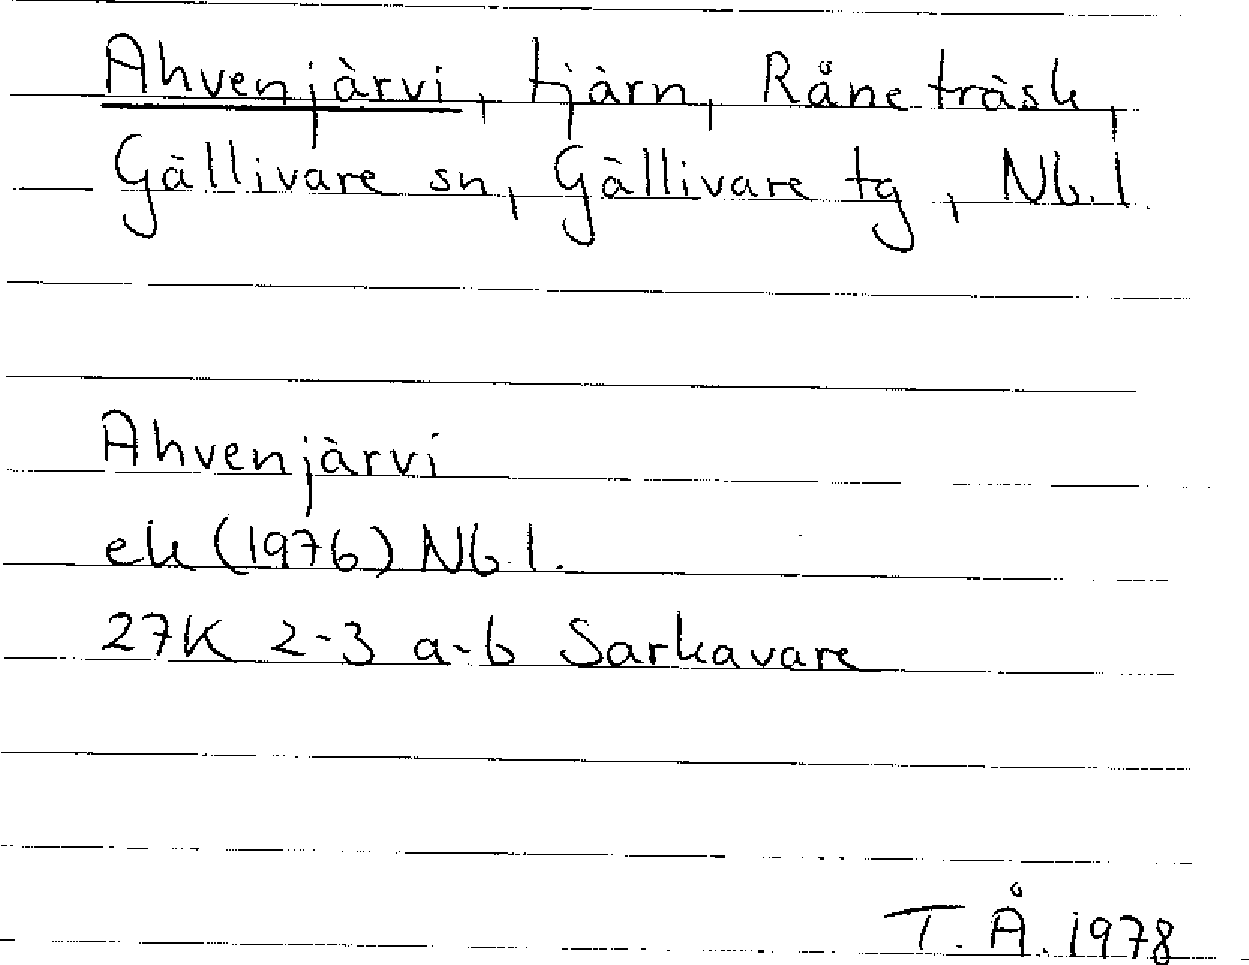 Ahvenjärvi, tjärn, Råne träsk,
Gällivare sn, Gällivare tg, Nb. l.
Ahvenjärvi
ek (1976) Nb l.
27K 2-3 a-b Sarkavare
T. Å. 1978